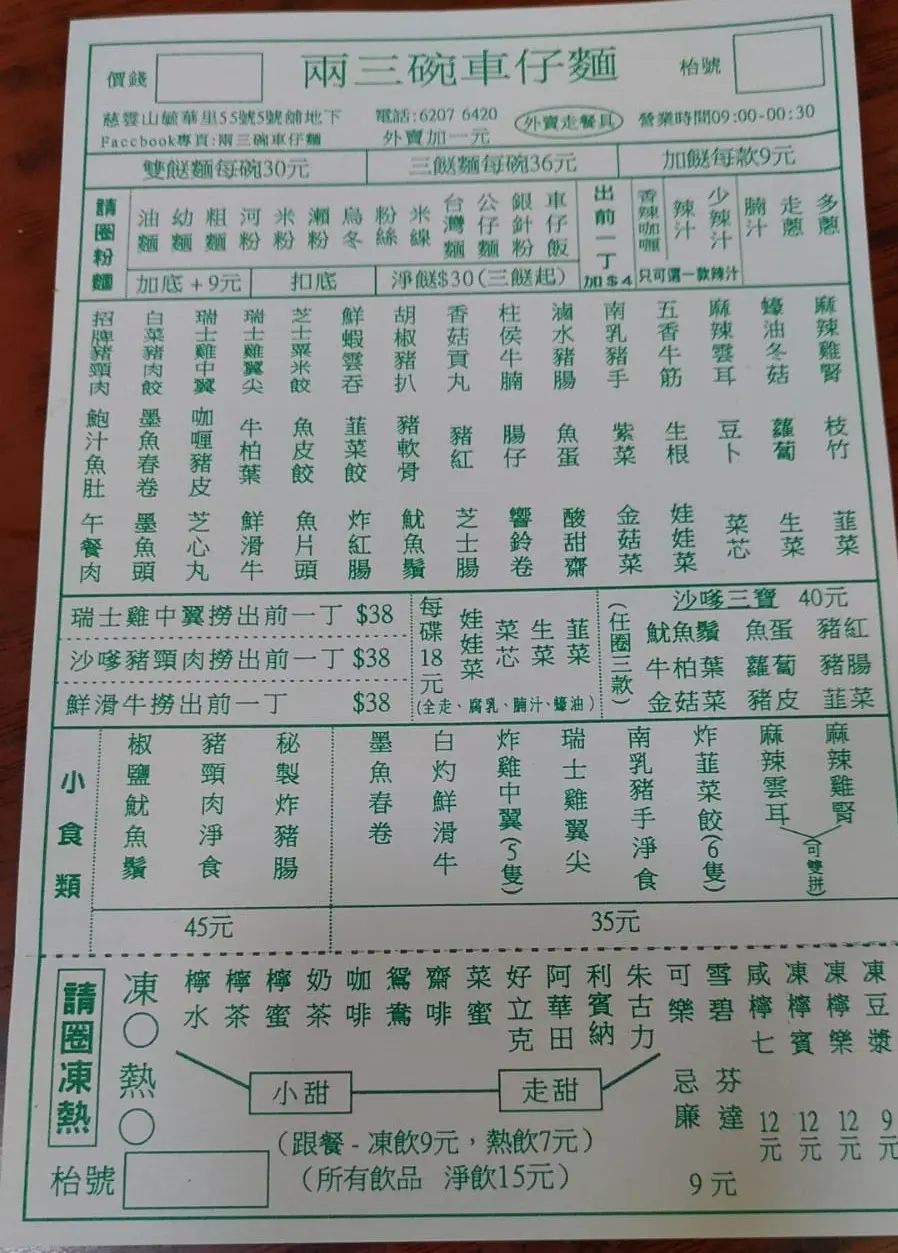 價錢
兩三碗車仔麵
枱號
慈雲山毓華里55號5號舖地下
電話:6207 6420
外賣走餐具
營業時間09:00-00:30
Faccbook專頁:兩三碗車仔麵
外賣加一元
雙餸麵每碗30元
三餸麵每碗36元
加餸每款9元
請圈粉麵
油麵
幼麵
粗麵
河粉
米粉
瀨粉
烏冬
粉絲
米線
台灣麵
公仔麵
銀針粉
車仔飯
出前一丁加$4
香辣咖喱
辣汁
少辣汁
只可選一款辣汁
腩汁
走蔥
多蔥
加底+9元
扣底
淨餸$30(三餸起)
招牌豬頸肉
白菜豬肉餃
瑞士雞中翼
瑞士雞翼尖
芝士粟米餃
鮮蝦雲吞
胡椒豬扒
香菇貢丸
柱侯牛腩
滷水豬腸
南乳豬手
五香牛筋
麻辣雲耳
蠔油冬菇
麻辣雞腎
鮑汁魚肚
墨魚春卷
咖喱豬皮
牛柏葉
魚皮餃
韮菜餃
豬軟骨
豬紅
腸仔
魚蛋
紫菜
生根
豆卜
蘿蔔
枝竹
午餐肉
墨魚頭
芝心丸
鮮滑牛
魚片頭
炸紅腸
魷魚鬚
芝士腸
響鈴卷
酸甜齋
金菇菜
娃娃菜
菜芯
生菜
韮菜
瑞士雞中翼撈出前一丁 $38
沙嗲豬頸肉撈出前一丁 $38
鮮滑牛撈出前一丁 $38
每碟18元
娃娃菜
菜芯
生菜
韮菜
(全走、腐乳、腩汁、蠔油)
(任圈三款)
沙嗲三寶 40元
魷魚鬚 魚蛋 豬紅
牛柏葉 蘿蔔 豬腸
金菇菜 豬皮 韮菜
小食類
椒鹽魷魚鬚
豬頸肉淨食
秘製炸豬腸
45元
墨魚春卷
白灼鮮滑牛
炸雞中翼(5隻)
瑞士雞翼尖
南乳豬手淨食
炸韮菜餃(6隻)
麻辣雲耳
麻辣雞腎
(可雙拼)
35元
請圈凍熱
凍○
熱○
檸水
檸茶
檸蜜
奶茶
咖啡
鴛鴦
齋啡
菜蜜
好立克
阿華田
利賓納
朱古力
小甜
走甜
(跟餐 - 凍飲9元，熱飲7元)
(所有飲品 淨飲15元)
可樂
雪碧
忌廉
芬達
9元
咸檸七 12元
凍檸賓 12元
凍檸樂 12元
凍豆漿 9元
枱號